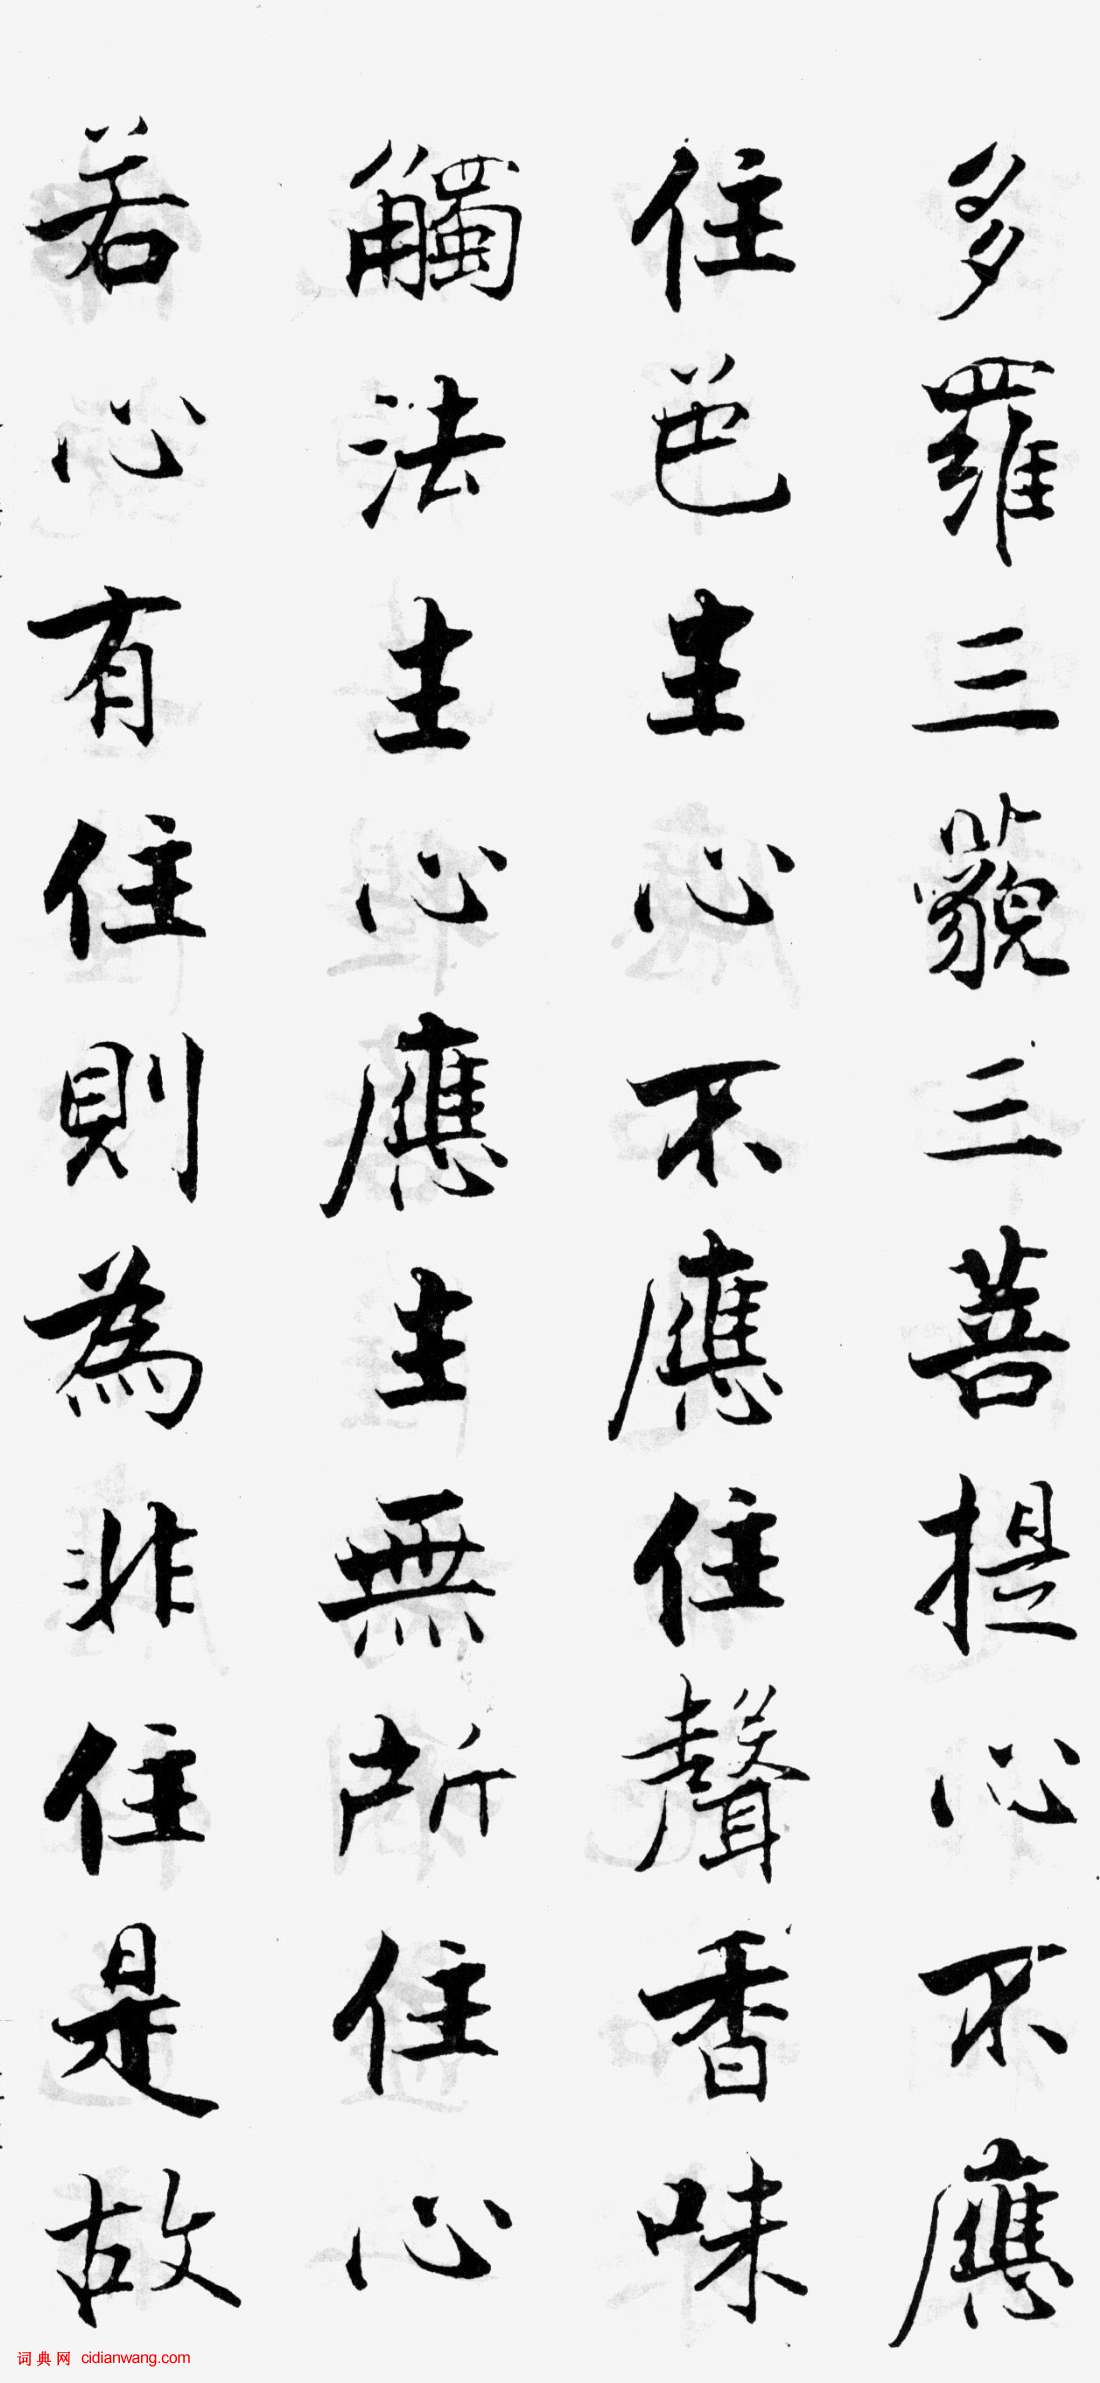 多羅三藐三菩提心不應
住色生心不應住聲香味
觸法生心應生無所住心
若心有住則為非住是故
词典网 cidianwang.com